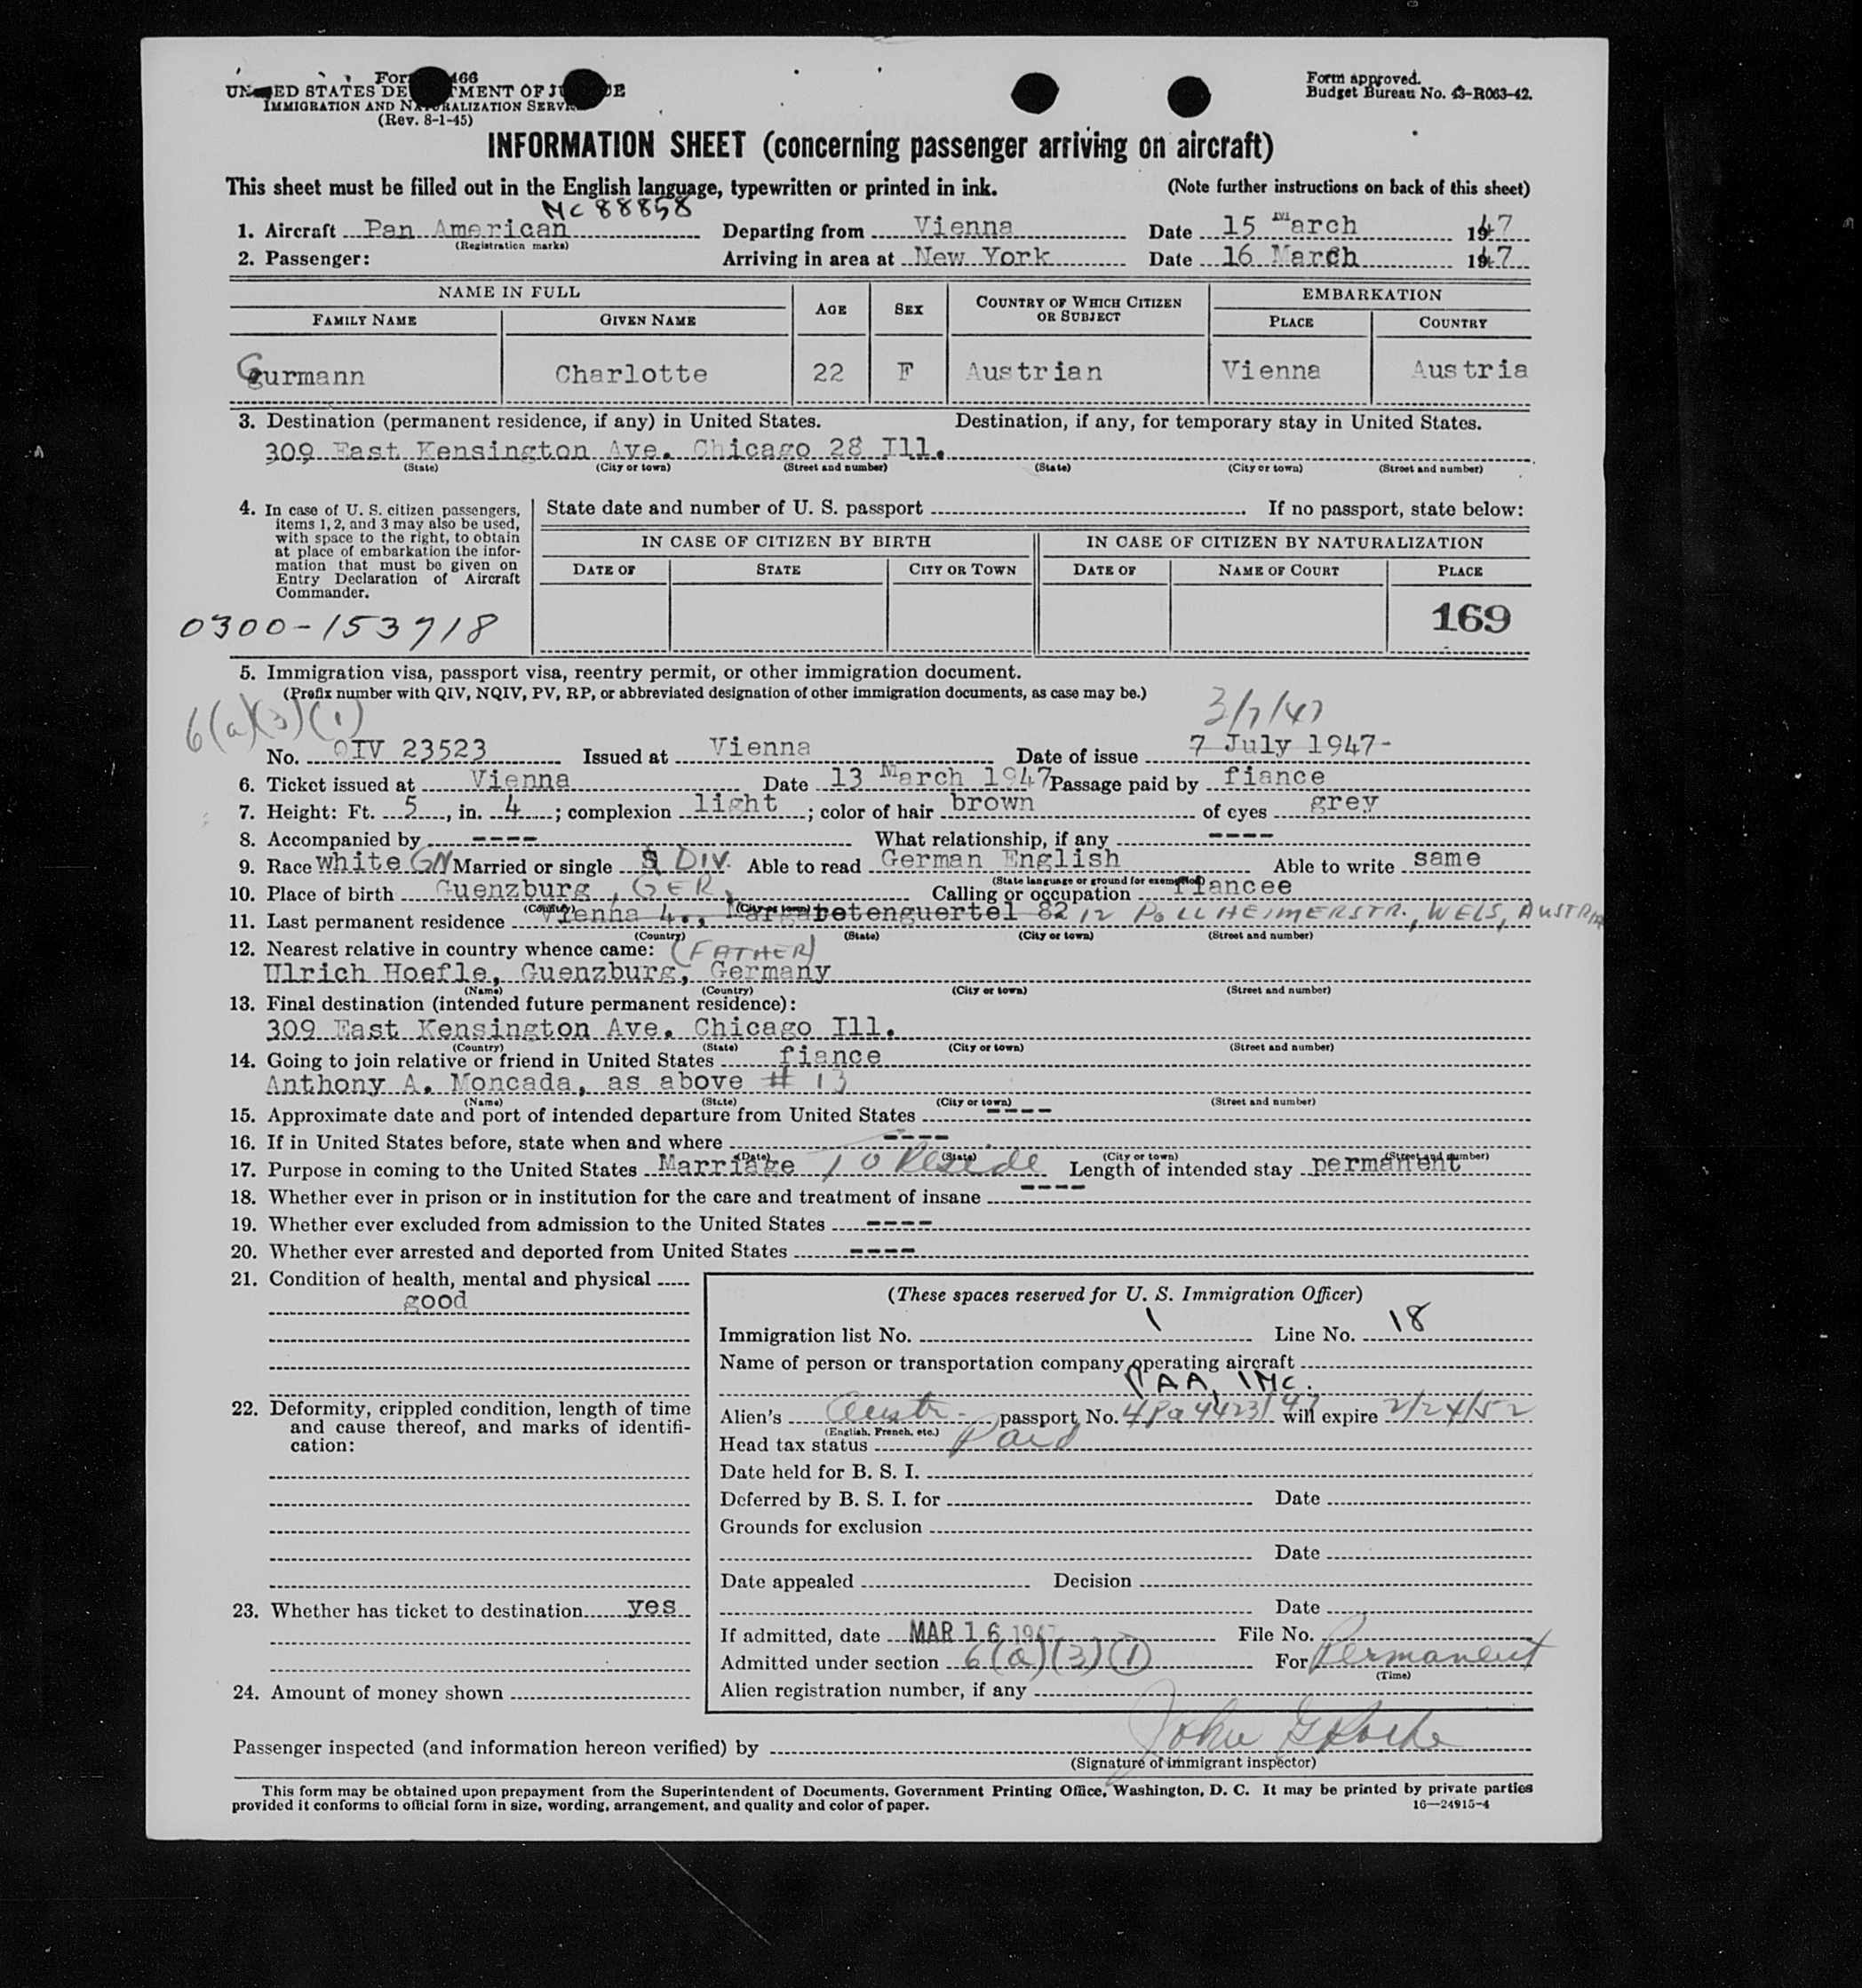 Form 466
UNITED STATES DEPARTMENT OF JUSTICE
IMMIGRATION AND NATURALIZATION SERVICE
(Rev. 8-1-45)
Form approved.
Budget Bureau No. 43-R063-42.
INFORMATION SHEET (concerning passenger arriving on aircraft)
This sheet must be filled out in the English language, typewritten or printed in ink. (Note further instructions on back of this sheet)
NC 88858
1. Aircraft Pan American Departing from Vienna Date 15 March 1947
(Registration marks)
2. Passenger: Arriving in area at New York Date 16 March 1947
NAME IN FULL AGE SEX COUNTRY OF WHICH CITIZEN OR SUBJECT EMBARKATION
FAMILY NAME GIVEN NAME PLACE COUNTRY
Gurmann Charlotte 22 F Austrian Vienna Austria
3. Destination (permanent residence, if any) in United States. Destination, if any, for temporary stay in United States.
309 East Kensington Ave. Chicago 28 Ill.
(State) (City or town) (Street and number) (State) (City or town) (Street and number)
4. In case of U. S. citizen passengers, items 1, 2, and 3 may also be used, with space to the right, to obtain at place of embarkation the information that must be given on Entry Declaration of Aircraft Commander.
State date and number of U. S. passport If no passport, state below:
IN CASE OF CITIZEN BY BIRTH IN CASE OF CITIZEN BY NATURALIZATION
DATE OF STATE CITY OR TOWN DATE OF NAME OF COURT PLACE
169
0300-153718
5. Immigration visa, passport visa, reentry permit, or other immigration document.
(Prefix number with QIV, NQIV, PV, RP, or abbreviated designation of other immigration documents, as case may be.)
6(a)(3)(1) 3/7/47
No. QIV 23523 Issued at Vienna Date of issue 7 July 1947-
6. Ticket issued at Vienna Date 13 March 1947 Passage paid by fiance
7. Height: Ft. 5, in. 4; complexion light; color of hair brown of eyes grey
8. Accompanied by ---- What relationship, if any ----
9. Race white GN Married or single S DIV. Able to read German English Able to write same
(State language or ground for exemption)
10. Place of birth Guenzburg, GER. Calling or occupation fiancee
(Country) (City or town)
11. Last permanent residence Vienna 4., Margaretenguertel 82 12 POLLHEIMERSTR., WELS, AUSTRIA
(Country) (State) (City or town) (Street and number)
12. Nearest relative in country whence came: (FATHER)
Ulrich Hoefle, Guenzburg, Germany
(Name) (Country) (City or town) (Street and number)
13. Final destination (intended future permanent residence):
309 East Kensington Ave. Chicago Ill.
(Country) (State) (City or town) (Street and number)
14. Going to join relative or friend in United States fiance
Anthony A. Moncada, as above # 13
(Name) (State) (City or town) (Street and number)
15. Approximate date and port of intended departure from United States ----
16. If in United States before, state when and where ----
(Date) (State) (City or town) (Street and number)
17. Purpose in coming to the United States Marriage To Reside Length of intended stay permanent
18. Whether ever in prison or in institution for the care and treatment of insane ----
19. Whether ever excluded from admission to the United States ----
20. Whether ever arrested and deported from United States ----
21. Condition of health, mental and physical
good
22. Deformity, crippled condition, length of time and cause thereof, and marks of identification:
23. Whether has ticket to destination yes
24. Amount of money shown
(These spaces reserved for U. S. Immigration Officer)
Immigration list No. 1 Line No. 18
Name of person or transportation company operating aircraft
PAA, INC.
Alien's Austr- passport No. will expire 2/24/52
(English, French, etc.)
Head tax status Paid
Date held for B. S. I.
Deferred by B. S. I. for Date
Grounds for exclusion
Date
Date appealed Decision
Date
If admitted, date MAR 16 1947 File No.
Admitted under section 6(a)(3)(1) For Permanent
(Time)
Alien registration number, if any
Passenger inspected (and information hereon verified) by
(Signature of immigrant inspector)
This form may be obtained upon prepayment from the Superintendent of Documents, Government Printing Office, Washington, D. C. It may be printed by private parties
provided it conforms to official form in size, wording, arrangement, and quality and color of paper. 16—24915-4